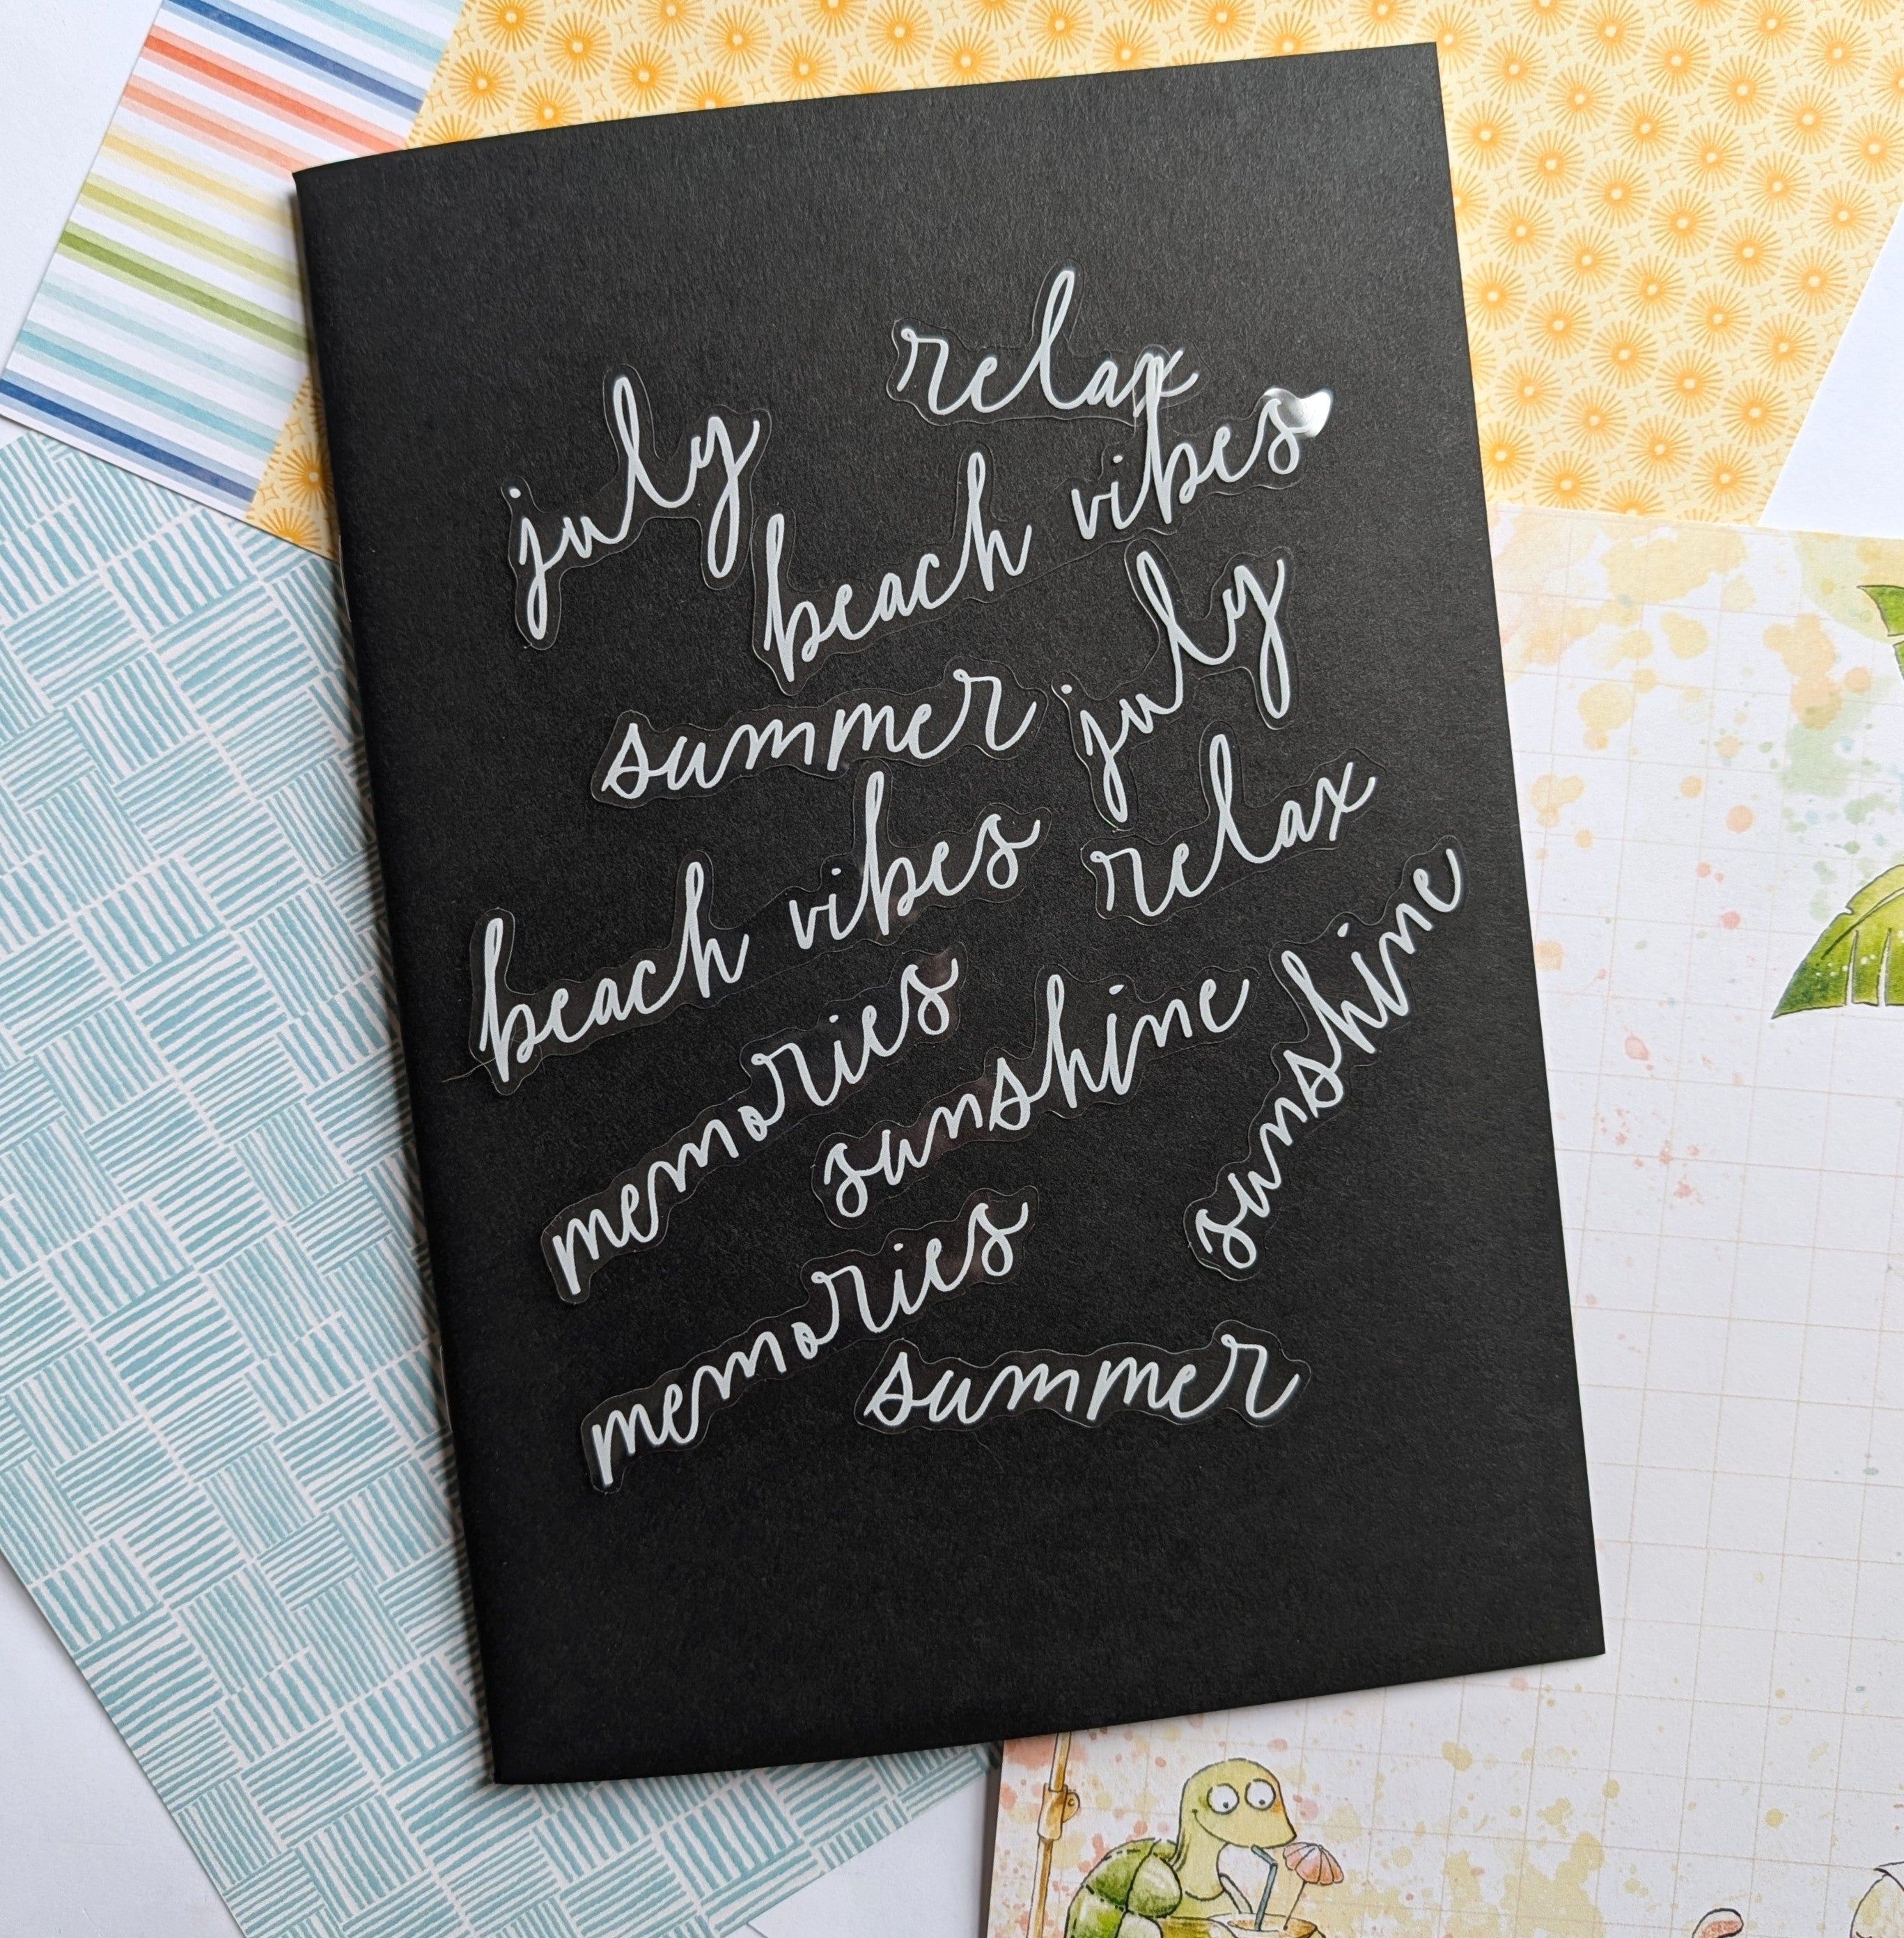 relax
july
beach vibes
summer
july
beach vibes
relax
memories
sunshine
sunshine
memories
summer